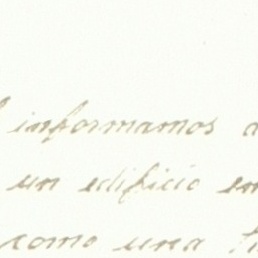 informamos a
un edificio en
como una